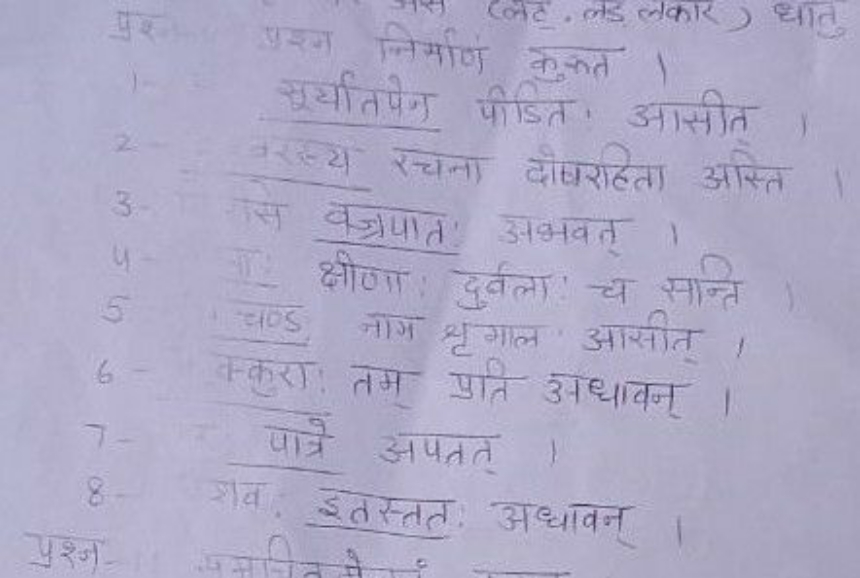 (लट्, लङ् लकार) धातु
प्रश्न प्रश्न निर्माणं कुरुत ।
1- सूर्यातपेन पीडितः आसीत् ।
2- रचना दोषरहिता अस्ति ।
3- वज्रपातः अभवत् ।
4- क्षीणाः दुर्वलाः च सन्ति ।
5 चण्ड नाम शृगालः आसीत् ।
6- क्कुराः तम् प्रति अधावन् ।
7- पात्रे अपतत् ।
8- इतस्ततः अधावन् ।
प्रश्न-